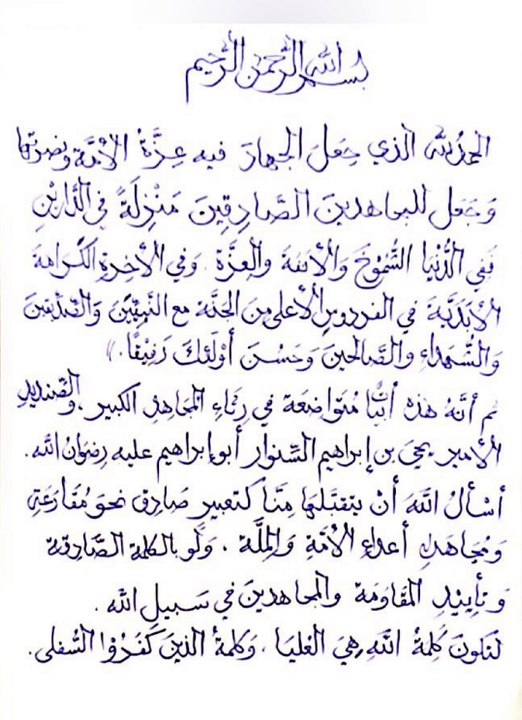 بسم الله الرَّحمن الرَّحيم
الحمدُ لله الذي جعَلَ الجهادَ فيه عِزَّةُ الأمَّة ونصرتها
وَجَعَل للمجاهدينَ الصَّادِقِينَ مَنْزِلَةً في الدَّارَيْنِ
فَفي الدُّنْيَا الشُّمُوخَ وَالأنفةَ والعِزَّةَ. وَفي الأخِرةِ الكَرامةَ
الأبَدَيَّةَ في الفردوسِ الأعلى مِنَ الجنَّة مع النَّبيِّيْنَ وَالصِّدِّيقينَ
وَالشُّهَداءِ والصَّالحينَ وَحَسُنَ أُوْلَئِكَ رَفِيْقًا.))
ثم أنَّهُ هذه أبْيَاتٌ مُتَواضِعَة في رِثَاءِ المُجاهِدِ الكبير، والصِّنديد
الأمير يحيى بن إبراهيم السِّنوار أبو إبراهيم عليه رِضوَانُ الله.
أسْألُ اللهَ أنْ يتقبَّلَها مِنَّا كتعبيرٍ صَادِقٍ نحوَ مُقارَعَةِ
وَمُجاهَدةِ أعداءِ الأمَّةِ وَالمِلَّة، وَلَو بالكلمة الصَّادِقة
وَتأييْدِ المقاوَمة والمجاهدينَ في سَبيلِ الله.
لتَكونَ كَلِمةُ اللهِ هِيَ العُليَا، وَكلمةُ الذينَ كَفَرُوْا السُّفلى.